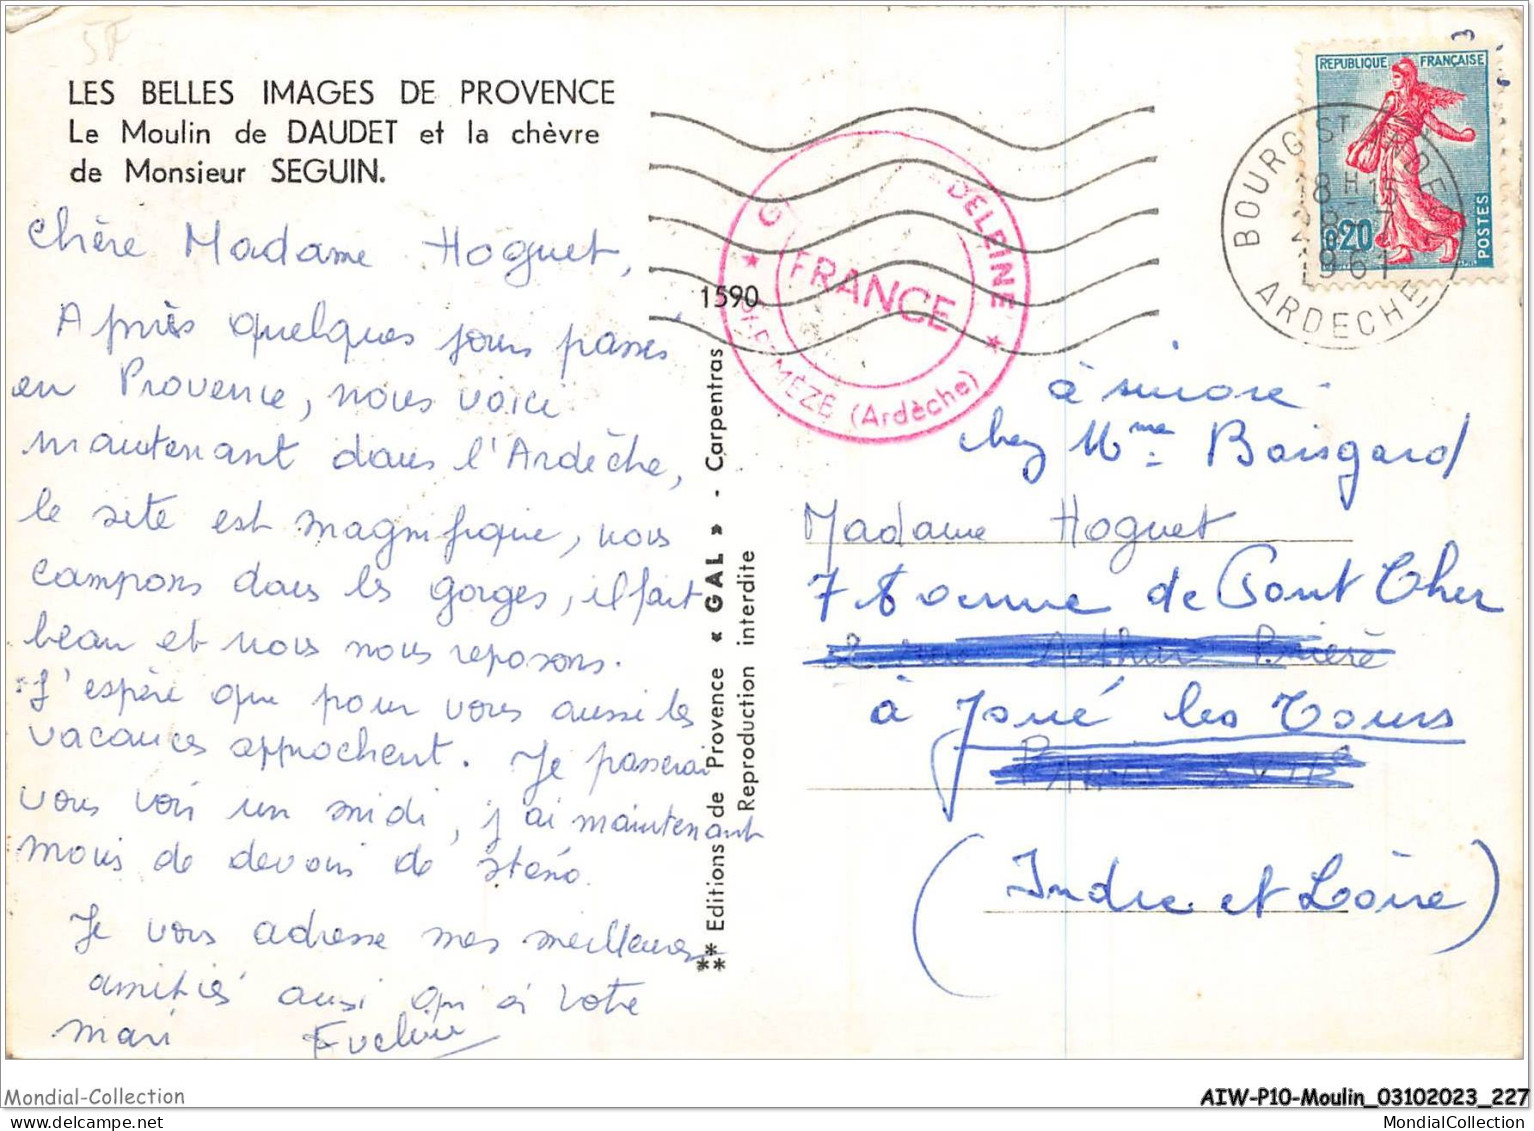 LES BELLES IMAGES DE PROVENCE
Le Moulin de DAUDET et la chèvre
de Monsieur SEGUIN.
Chère Madame Hoguet,
Après quelques jours passés
en Provence, nous voici
maintenant dans l'Ardèche,
le site est magnifique, nous
campons dans les gorges, il fait
beau et nous nous reposons.
J'espère que pour vous aussi les
vacances approchent. Je passerai
vous voir un midi, j'ai maintenant
moins de devoirs de sténo.
Je vous adresse mes meilleures
amitiés ainsi qu'à votre
mari Eveline
1590
** Editions de Provence « GAL » - Carpentras
Reproduction interdite
DELEINE
FRANCE
MÈZE (Ardèche)
REPUBLIQUE FRANÇAISE
0,20
POSTES
BOURG ST
18 H 15
1961
ARDECHE
à suivre
chez Mme Boisgard
Madame Hoguet
7 de Pont Cher
Arthur
à Joué les Tours
(Indre et Loire)
Mondial-Collection
AIW-P10-Moulin_03102023_227
https://www.delcampe.net
MondialCollection